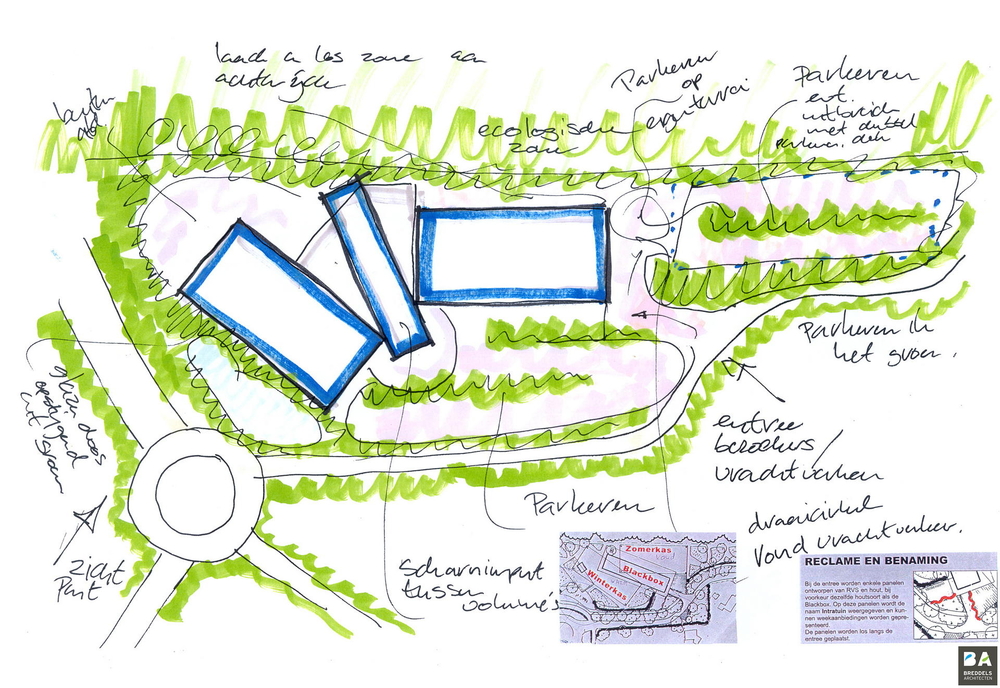 laad en los zone aan
achterzijde
Parkeren
op
eigen terrein
Parkeren
evt.
uitbreiden
met dubbel
ecologische
zone
Parkeren in
het groen.
glazen doos
opstijgend
uit groen
entree
bezoekers/
vrachtverkeer
Parkeren
draaicirkel
rond vrachtverkeer.
zicht
Punt
scharnierpunt
tussen
volumes
Zomerkas
Blackbox
Winterkas
RECLAME EN BENAMING
Bij de entree worden enkele panelen
ontworpen van RVS en hout, bij
voorkeur dezelfde houtsoort als de
Blackbox. Op deze panelen wordt de
naam Intratuin weergegeven en kun-
nen weekaanbiedingen worden gepre-
senteerd.
De panelen worden los langs de
entree geplaatst.
BA
BREDDELS
ARCHITECTEN